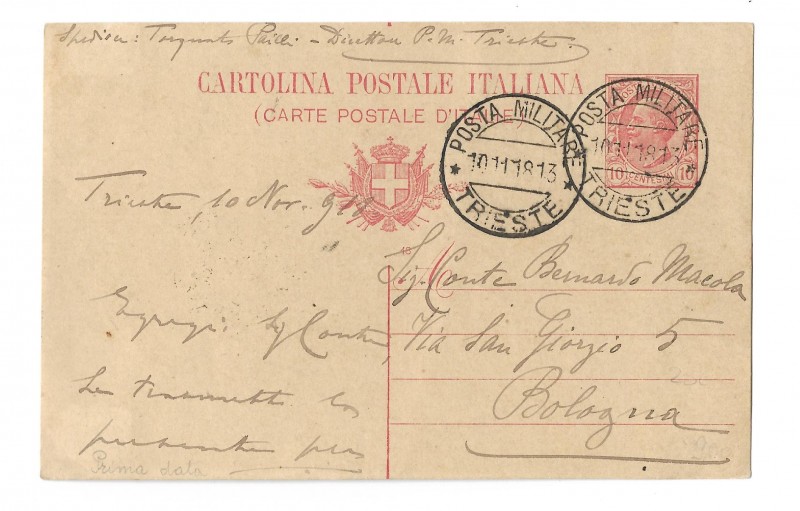 Spedisce: Torquato - Direttore P.M. Trieste.
CARTOLINA POSTALE ITALIANA
(CARTE POSTALE D'ITALIE)
POSTA MILITARE
10.11.18.13
TRIESTE
POSTA MILITARE
10.11.18.13
TRIESTE
10 CENTESIMI 10
Trieste, 10 Nov. 918
18
Sig. Conte Bernardo Macola
Via San Giorgio 5
Bologna
Egregi. Sig Conte,
Le trasmetto la
presente per
Prima data